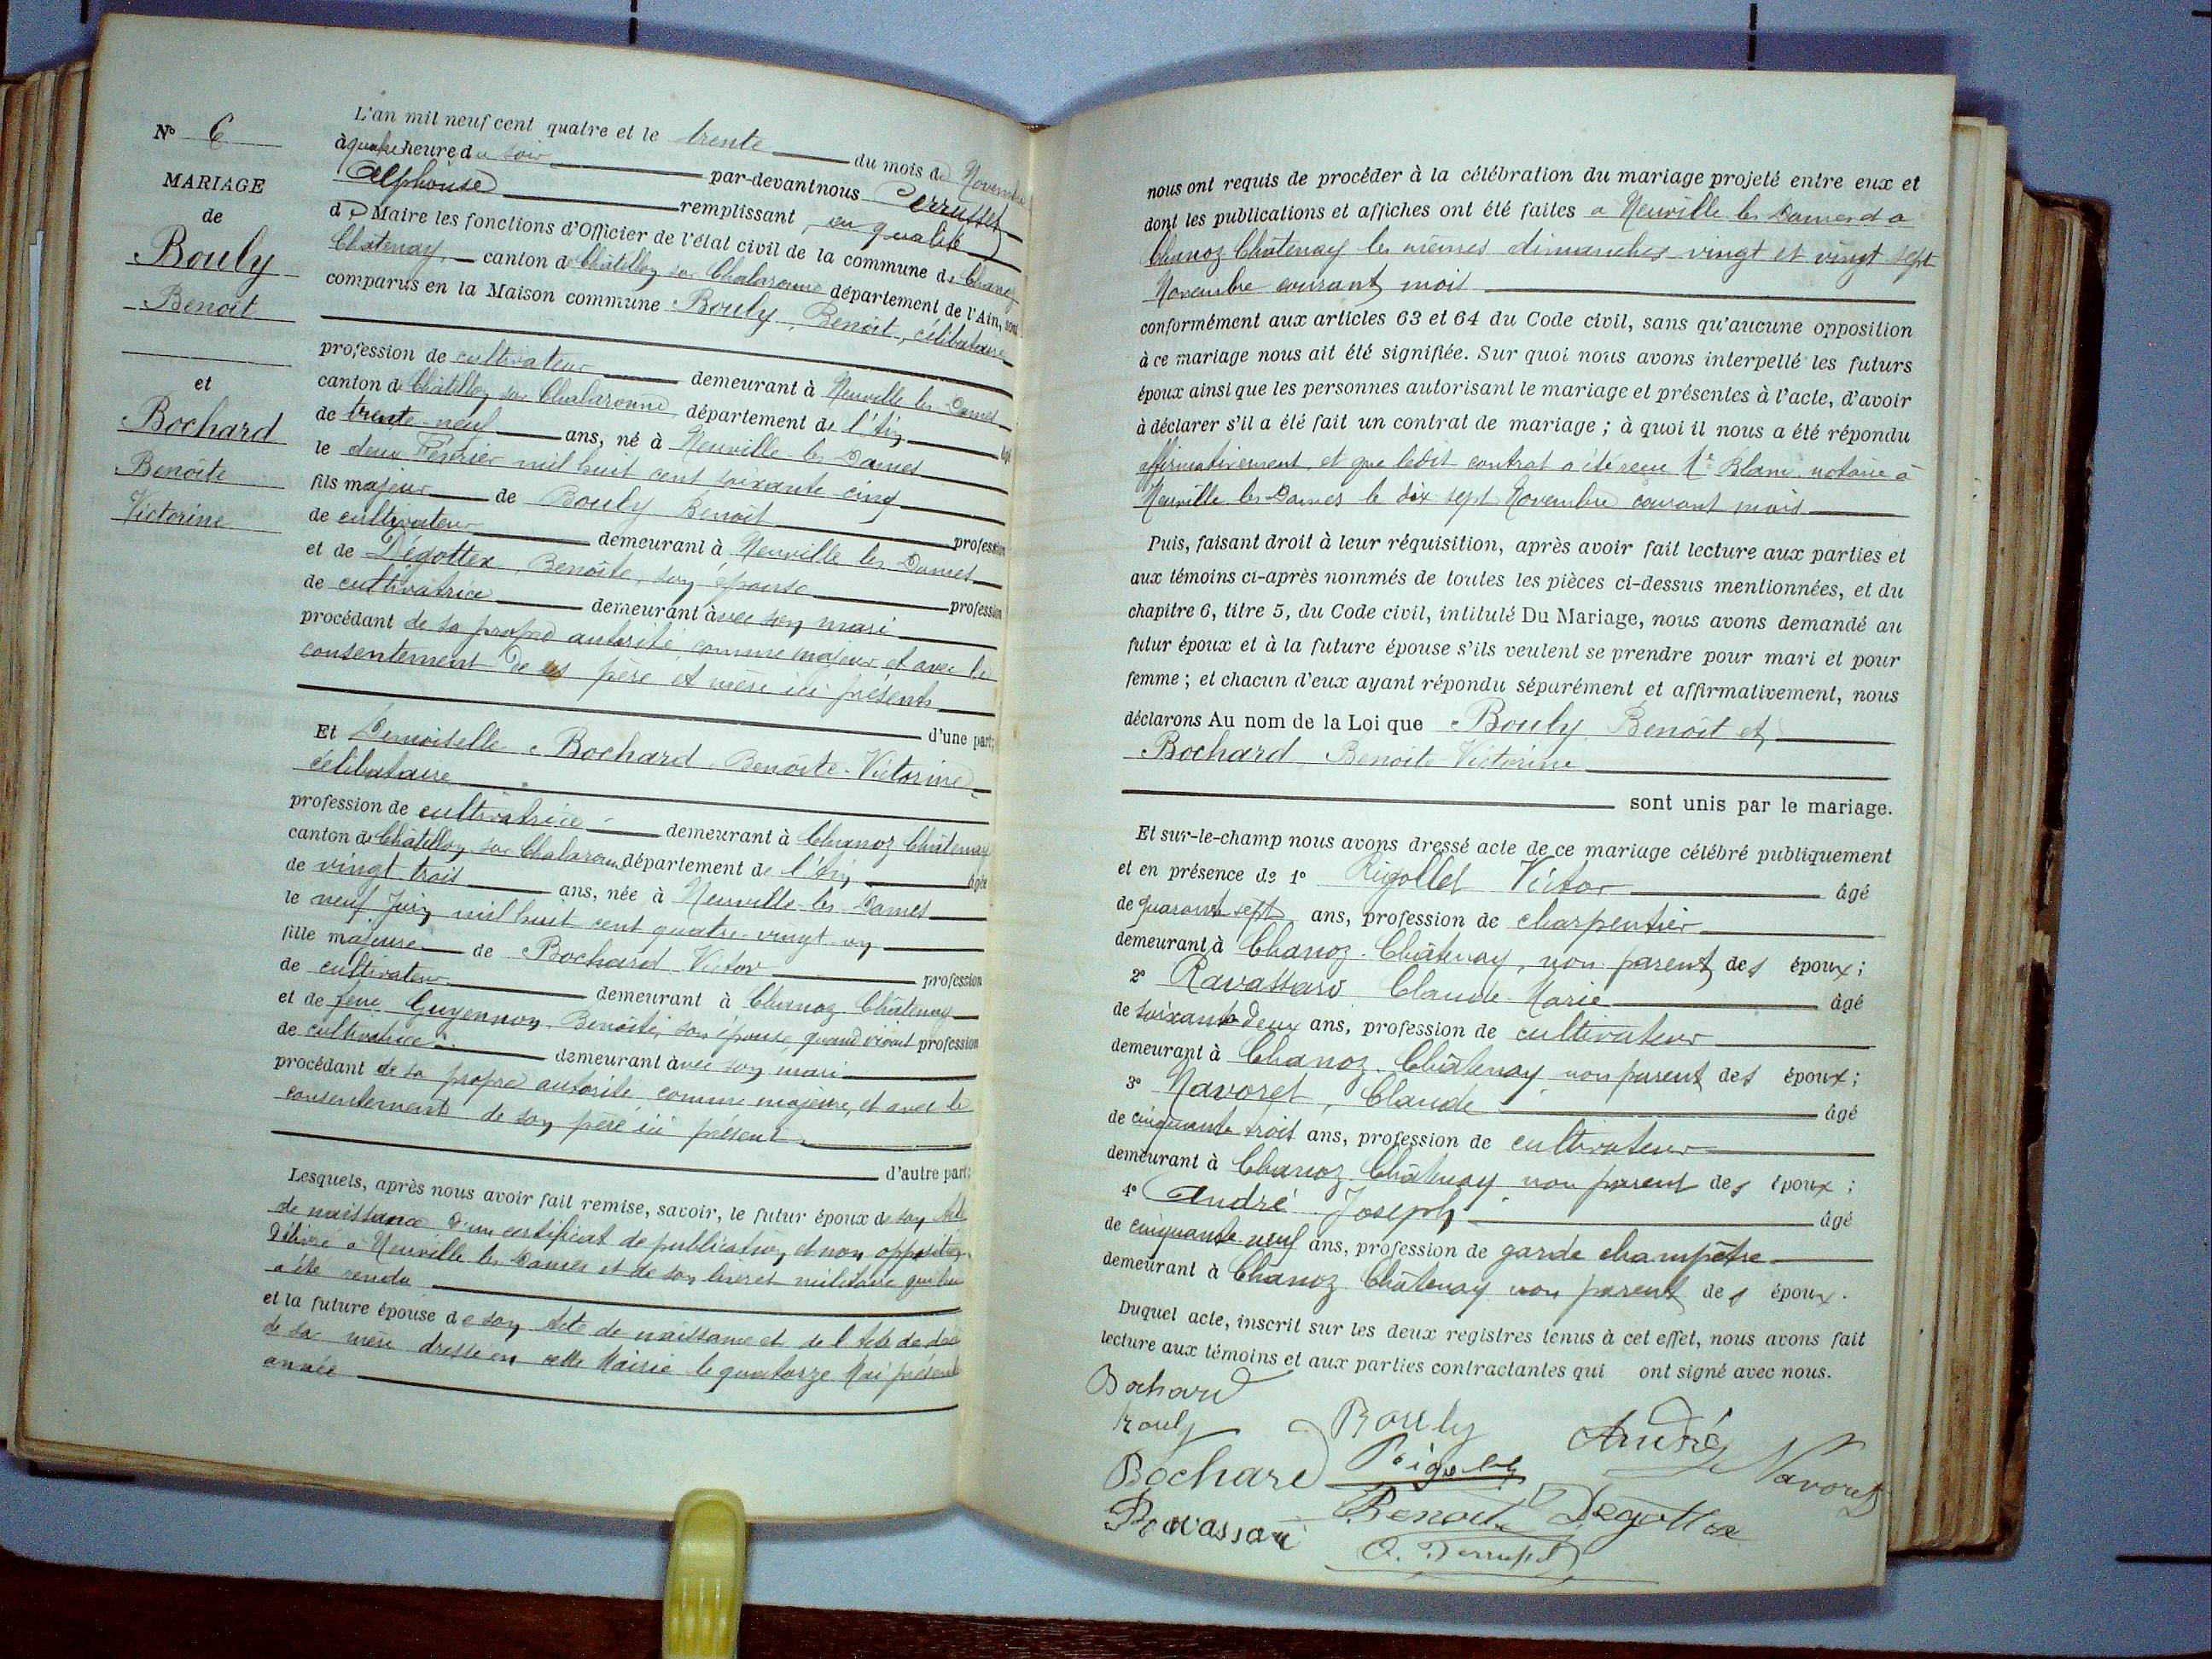 N° 6
MARIAGE
de
Bouly
Benoit
et
Bochard
Benoite
Victorine
L'an mil neuf cent quatre et le trente du mois de Novembre
à quatre heure du soir par-devant nous Perrusset
Alphonse remplissant, en qualité
de Maire les fonctions d'Officier de l'état civil de la commune de Chanoz
Châtenay, canton de Châtillon sur Chalaronne département de l'Ain, sont
comparus en la Maison commune Bouly, Benoit, célibataire
profession de cultivateur demeurant à Neuville les Dames
canton de Châtillon sur Chalaronne département de l'Ain âgé
de trente-neuf ans, né à Neuville les Dames
le deux Février mil huit cent soixante cinq
fils majeur de Bouly Benoit profession
de cultivateur demeurant à Neuville les Dames
et de Dégottex, Benoîte, son épouse profession
de cultivatrice demeurant avec son mari
procédant de sa propre autorité comme majeur et avec le
consentement de ses père et mère ici présents
d'une part;
Et Demoiselle Bochard Benoite-Victorine
célibataire
profession de cultivatrice demeurant à Chanoz Châtenay
canton de Châtillon sur Chalaronne département de l'Ain âgée
de vingt trois ans, née à Neuville les Dames
le neuf Juin mil huit cent quatre-vingt-un
fille majeure de Bochard Victor profession
de cultivateur demeurant à Chanoz Châtenay
et de feue Guyennon Benoîte, son épouse, quand vivait profession
de cultivatrice demeurant avec son mari
procédant de sa propre autorité comme majeure, et avec le
consentement de son père ici présent
d'autre part;
Lesquels, après nous avoir fait remise, savoir, le futur époux de son Acte
de naissance d'un certificat de publication et non opposition
délivré à Neuville les Dames et de son livret militaire qui lui
a été rendu
et la future épouse de son Acte de naissance et de l'Acte de décès
de sa mère dressé en cette Mairie le quatorze Mai présente
année
nous ont requis de procéder à la célébration du mariage projeté entre eux et
dont les publications et affiches ont été faites a Neuville les Dames et a
Chanoz Châtenay les mêmes dimanches vingt et vingt sept
Novembre courant mois
conformément aux articles 63 et 64 du Code civil, sans qu'aucune opposition
à ce mariage nous ait été signifiée. Sur quoi nous avons interpellé les futurs
époux ainsi que les personnes autorisant le mariage et présentes à l'acte, d'avoir
à déclarer s'il a été fait un contrat de mariage; à quoi il nous a été répondu
affirmativement et que ledit contrat a été reçu Me Blanc notaire à
Neuville les Dames le dix sept Novembre courant mois
Puis, faisant droit à leur réquisition, après avoir fait lecture aux parties et
aux témoins ci-après nommés de toutes les pièces ci-dessus mentionnées, et du
chapitre 6, titre 5, du Code civil, intitulé Du Mariage, nous avons demandé au
futur époux et à la future épouse s'ils veulent se prendre pour mari et pour
femme; et chacun d'eux ayant répondu séparément et affirmativement, nous
déclarons Au nom de la Loi que Bouly Benoit et
Bochard Benoite Victorine
sont unis par le mariage.
Et sur-le-champ nous avons dressé acte de ce mariage célébré publiquement
et en présence de 1° Rigollet Victor âgé
de quarante sept ans, profession de charpentier
demeurant à Chanoz-Châtenay, non parent des époux;
2° Ravassard Claude Marie âgé
de soixante deux ans, profession de cultivateur
demeurant à Chanoz-Châtenay non parent des époux;
3° Navoret, Claude âgé
de cinquante trois ans, profession de cultivateur
demeurant à Chanoz Châtenay non parent des époux;
4° André Joseph âgé
de cinquante neuf ans, profession de garde champêtre
demeurant à Chanoz Châtenay non parent des époux.
Duquel acte, inscrit sur les deux registres tenus à cet effet, nous avons fait
lecture aux témoins et aux parties contractantes qui ont signé avec nous.
Bochard
Bouly Bouly André
Bochard Rigollet Navoret
Ravassard Benoite Degottex
A. Perrusset